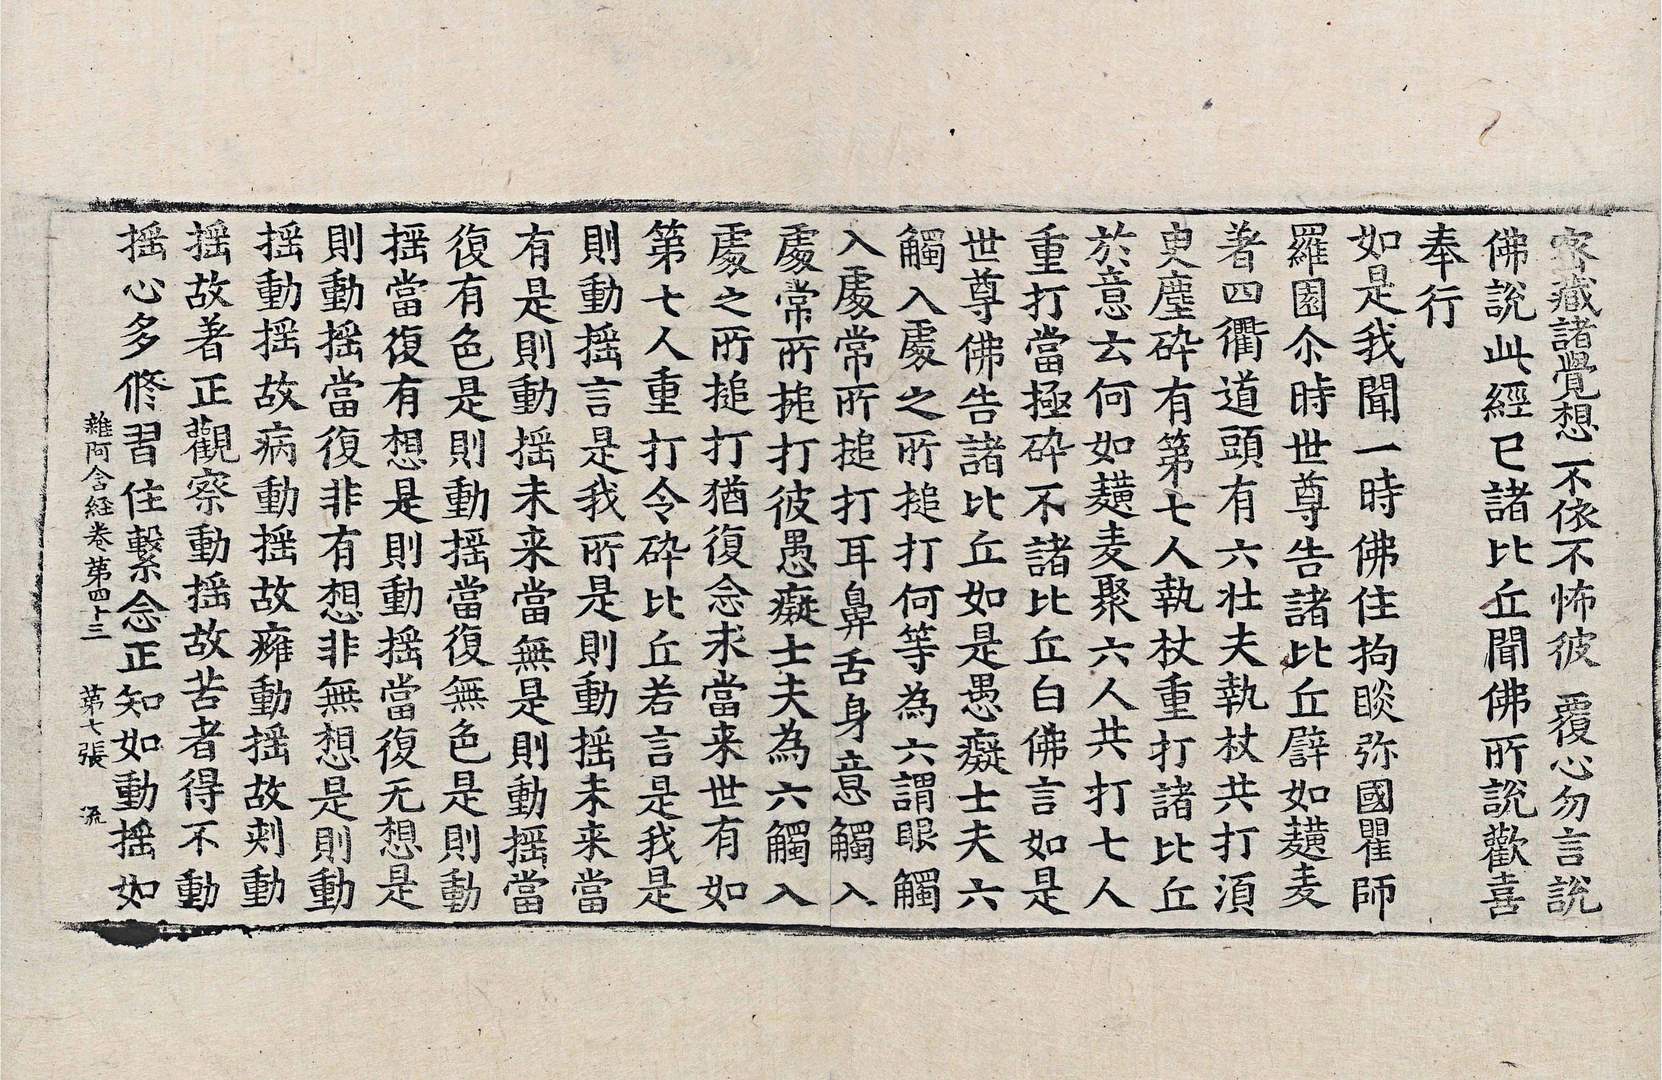 密藏諸覺想不依不怖彼覆心勿言說
佛說此經已諸比丘聞佛所說歡喜
奉行
如是我聞一時佛住拘睒弥國瞿師
羅園尒時世尊告諸比丘譬如𪍿麦
著四衢道頭有六壯夫執杖共打湏
臾塵碎有第七人執杖重打諸比丘
於意云何如𪍿麦聚六人共打七人
重打當極碎不諸比丘白佛言如是
世尊佛告諸比丘如是愚癡士夫六
觸入處之所搥打何等為六謂眼觸
入處常所搥打耳鼻舌身意觸入
處常所搥打彼愚癡士夫為六觸入
處之所搥打猶復念求當来世有如
第七人重打令碎比丘若言是我是
則動搖言是我所是則動搖未来當
有是則動搖未来當無是則動搖當
復有色是則動搖當復無色是則動
搖當復有想是則動搖當復无想是
則動搖當復非有想非無想是則動
搖動搖故病動搖故癰動搖故刺動
搖故著正觀察動搖故苦者得不動
搖心多修習住繫念正知如動搖如
雜阿含経卷第四十三 第七張 流